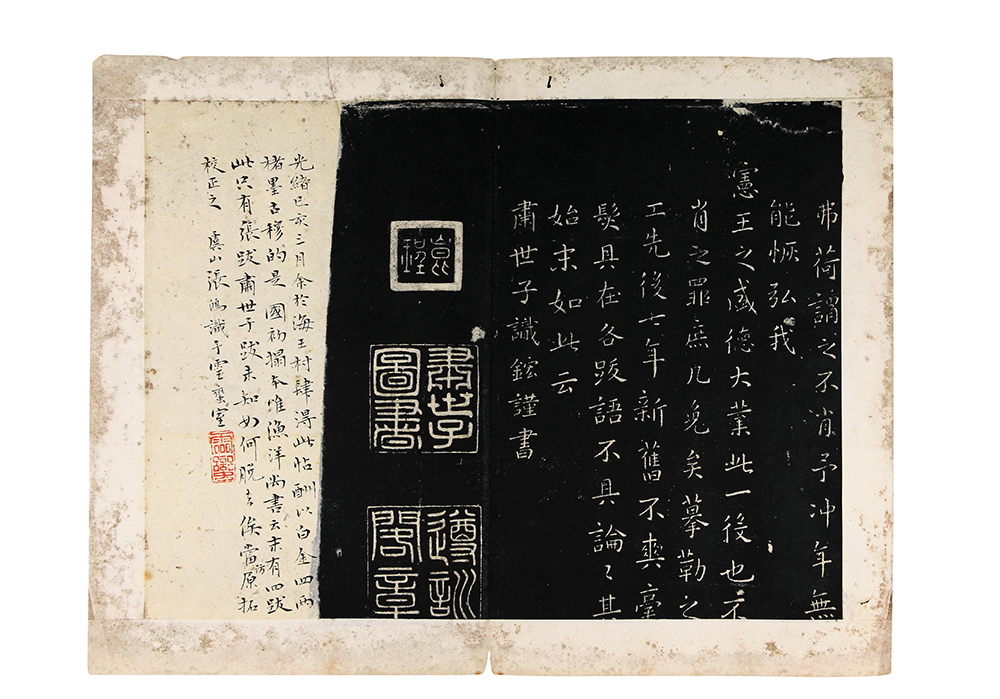 弗荷謂之不消予冲年無
能恢弘我
憲王之盛德大業此一役也不
肖之罪庶几免矣摹勒之
工先後七年新舊不爽毫
髮具在各跋語不具論〻其
始末如此云
肅世子識鋐謹書
肅世子
圖書
遵訓
閣章
光緒己亥三月余於海王村肆得此帖酬以白金四兩
楮墨古穆的是國初搨本唯漁洋尚書云末有四跋
此只有張跋肅世子跋未知如何脫去俟當訪原拓
校正之 虞山張鴻識于雲